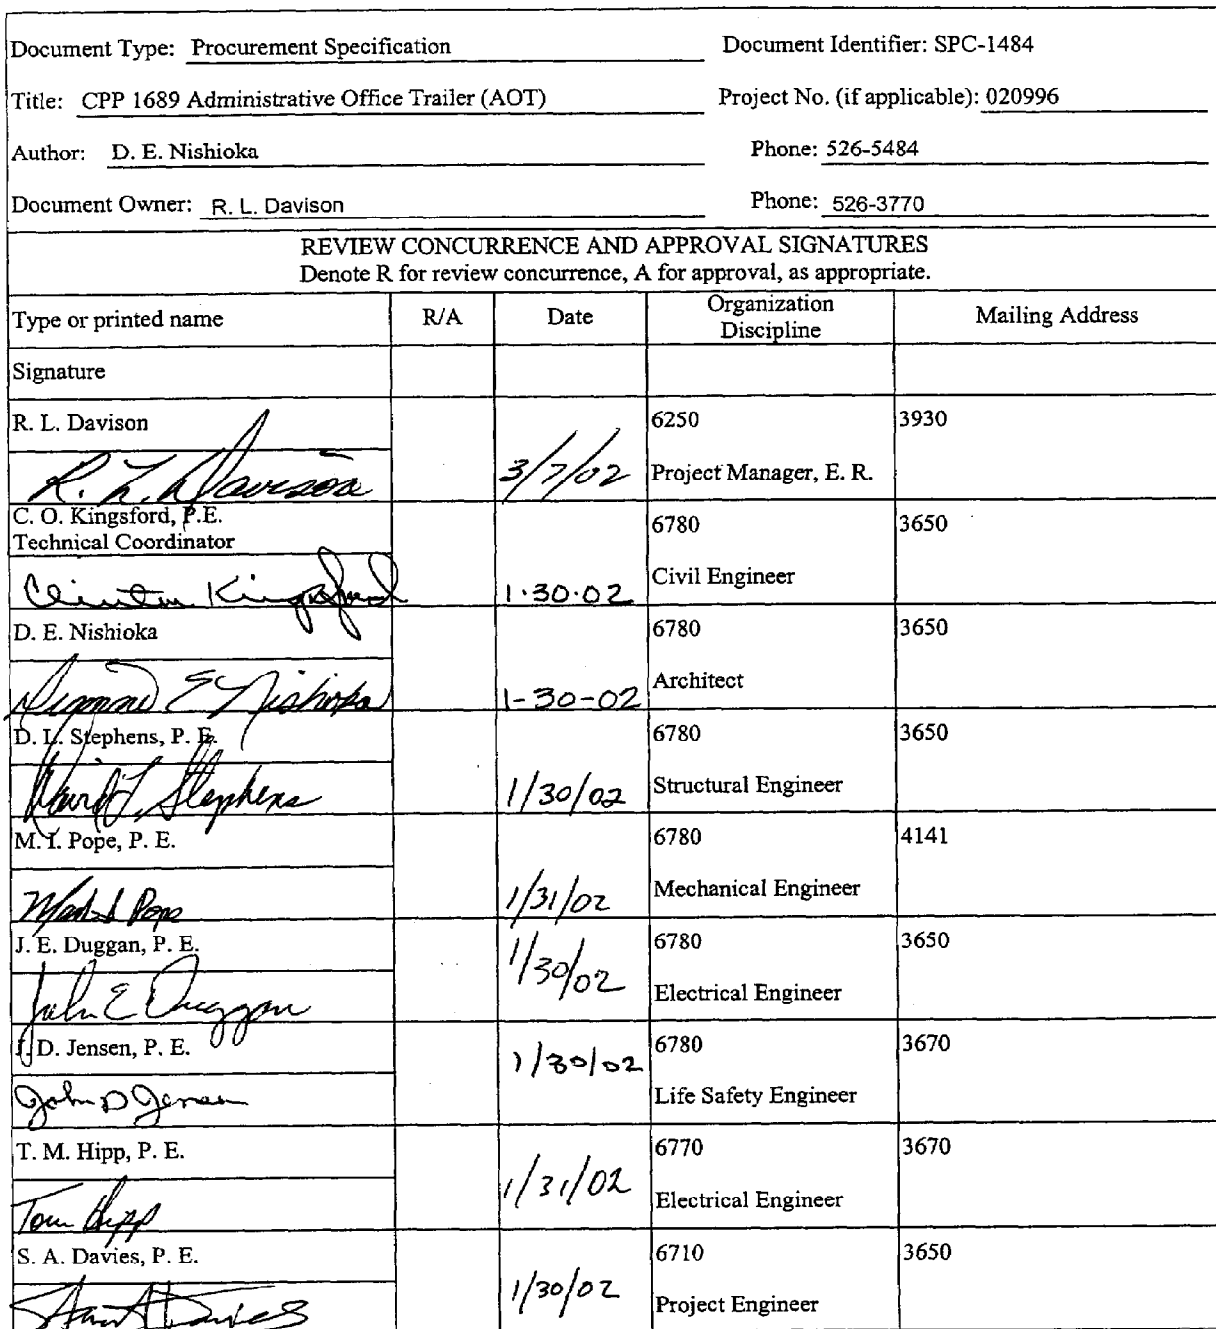 Document Type: Procurement Specification Document Identifier: SPC-1484
Title: CPP 1689 Administrative Office Trailer (AOT) Project No. (if applicable): 020996
Author: D. E. Nishioka Phone: 526-5484
Document Owner: R. L. Davison Phone: 526-3770
REVIEW CONCURRENCE AND APPROVAL SIGNATURES
Denote R for review concurrence, A for approval, as appropriate.
Type or printed name R/A Date Organization Discipline Mailing Address
Signature
R. L. Davison 6250 3930
R. L. Davison 3/7/02 Project Manager, E. R.
C. O. Kingsford, P.E. 6780 3650
Technical Coordinator
Clinton Kingsford 1·30·02 Civil Engineer
D. E. Nishioka 6780 3650
E Nishioka 1-30-02 Architect
D. L. Stephens, P. E. 6780 3650
David L. Stephens 1/30/02 Structural Engineer
M. I. Pope, P. E. 6780 4141
Mark I Pope 1/31/02 Mechanical Engineer
J. E. Duggan, P. E. 6780 3650
John E Duggan 1/30/02 Electrical Engineer
J. D. Jensen, P. E. 6780 3670
John D Jensen 1/30/02 Life Safety Engineer
T. M. Hipp, P. E. 6770 3670
Tom Hipp 1/31/02 Electrical Engineer
S. A. Davies, P. E. 6710 3650
Davies 1/30/02 Project Engineer